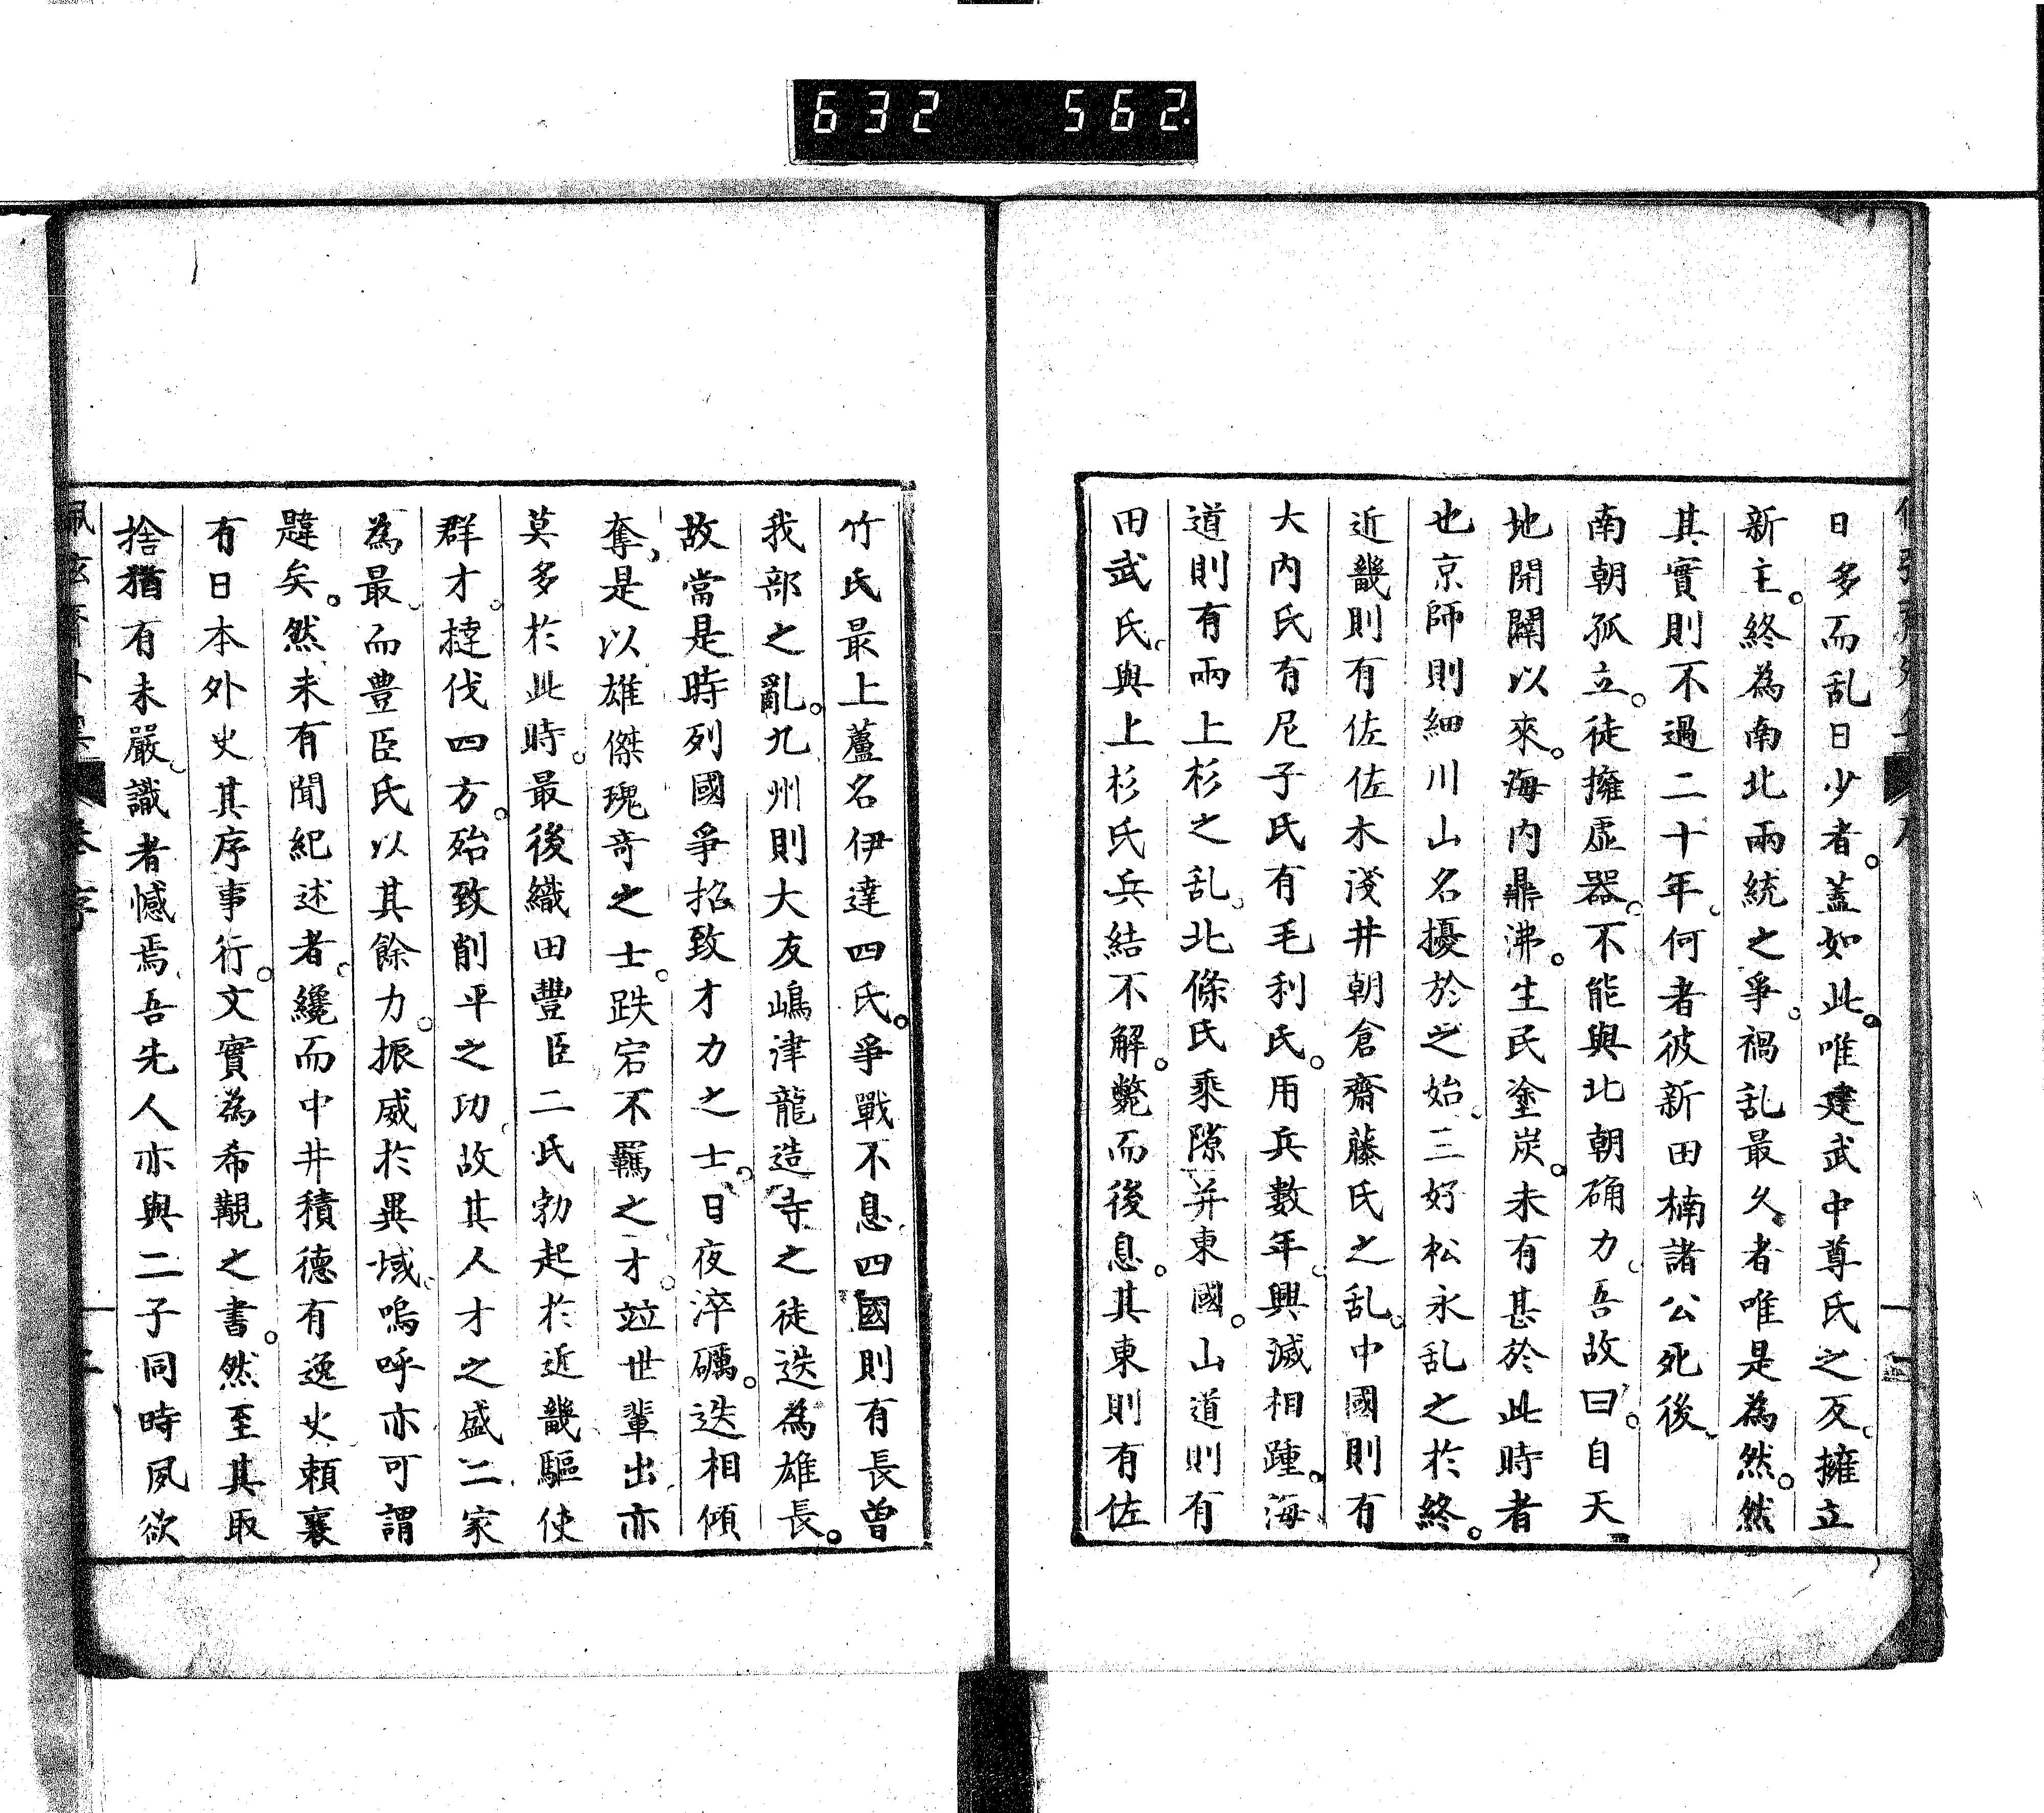 632 562
日多而乱日少者。蓋如此。唯建武中尊氏之反、擁立
新主。終為南北兩統之爭。禍乱最久者唯是為然。然
其實則不過二十年、何者彼新田楠諸公死後、
南朝孤立。徒擁虛器。不能與北朝确力、吾故曰。自天
地開闢以來。海内鼎沸。生民塗炭。未有甚於此時者
也京師則細川山名擾於之始、三好松永乱之於終。
近畿則有佐佐木淺井朝倉齋藤氏之乱。中國則有
大内氏有尼子氏有毛利氏。用兵數年、興滅相踵。海
道則有兩上杉之乱、北條氏乘隙并東國。山道則有
田武氏、與上杉氏兵結不解。斃而後息。其東則有佐
竹氏最上蘆名伊達四氏。爭戰不息、四國則有長曾
我部之亂。九州則大友嶋津龍造寺之徒迭為雄長。
故當是時列國爭招致才力之士、日夜淬礪。迭相傾
奪、是以雄傑瑰奇之士。跌宕不羈之才。竝世輩出亦
莫多於此時。最後織田豐臣二氏勃起於近畿驅使
群才。撻伐四方。殆致削平之功、故其人才之盛二家
為最、而豊臣氏以其餘力。振威於異域、嗚呼亦可謂
韙矣。然未有聞紀述者。纔而中井積德有逸史頼襄
有日本外史其序事行。文實為希覯之書。然至其取
捨猶有未嚴、識者憾焉、吾先人亦與二子同時夙欲